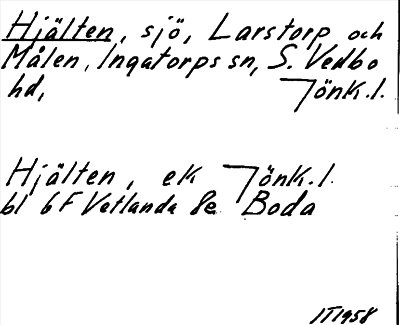 Hjälten, sjö, Larstorp och
Målen, Ingatorps sn, S. Vedbo
hd, Jönk. l.
Hjälten, ek Jönk. l.
bl 6F Vetlanda 8e Boda
IT1958